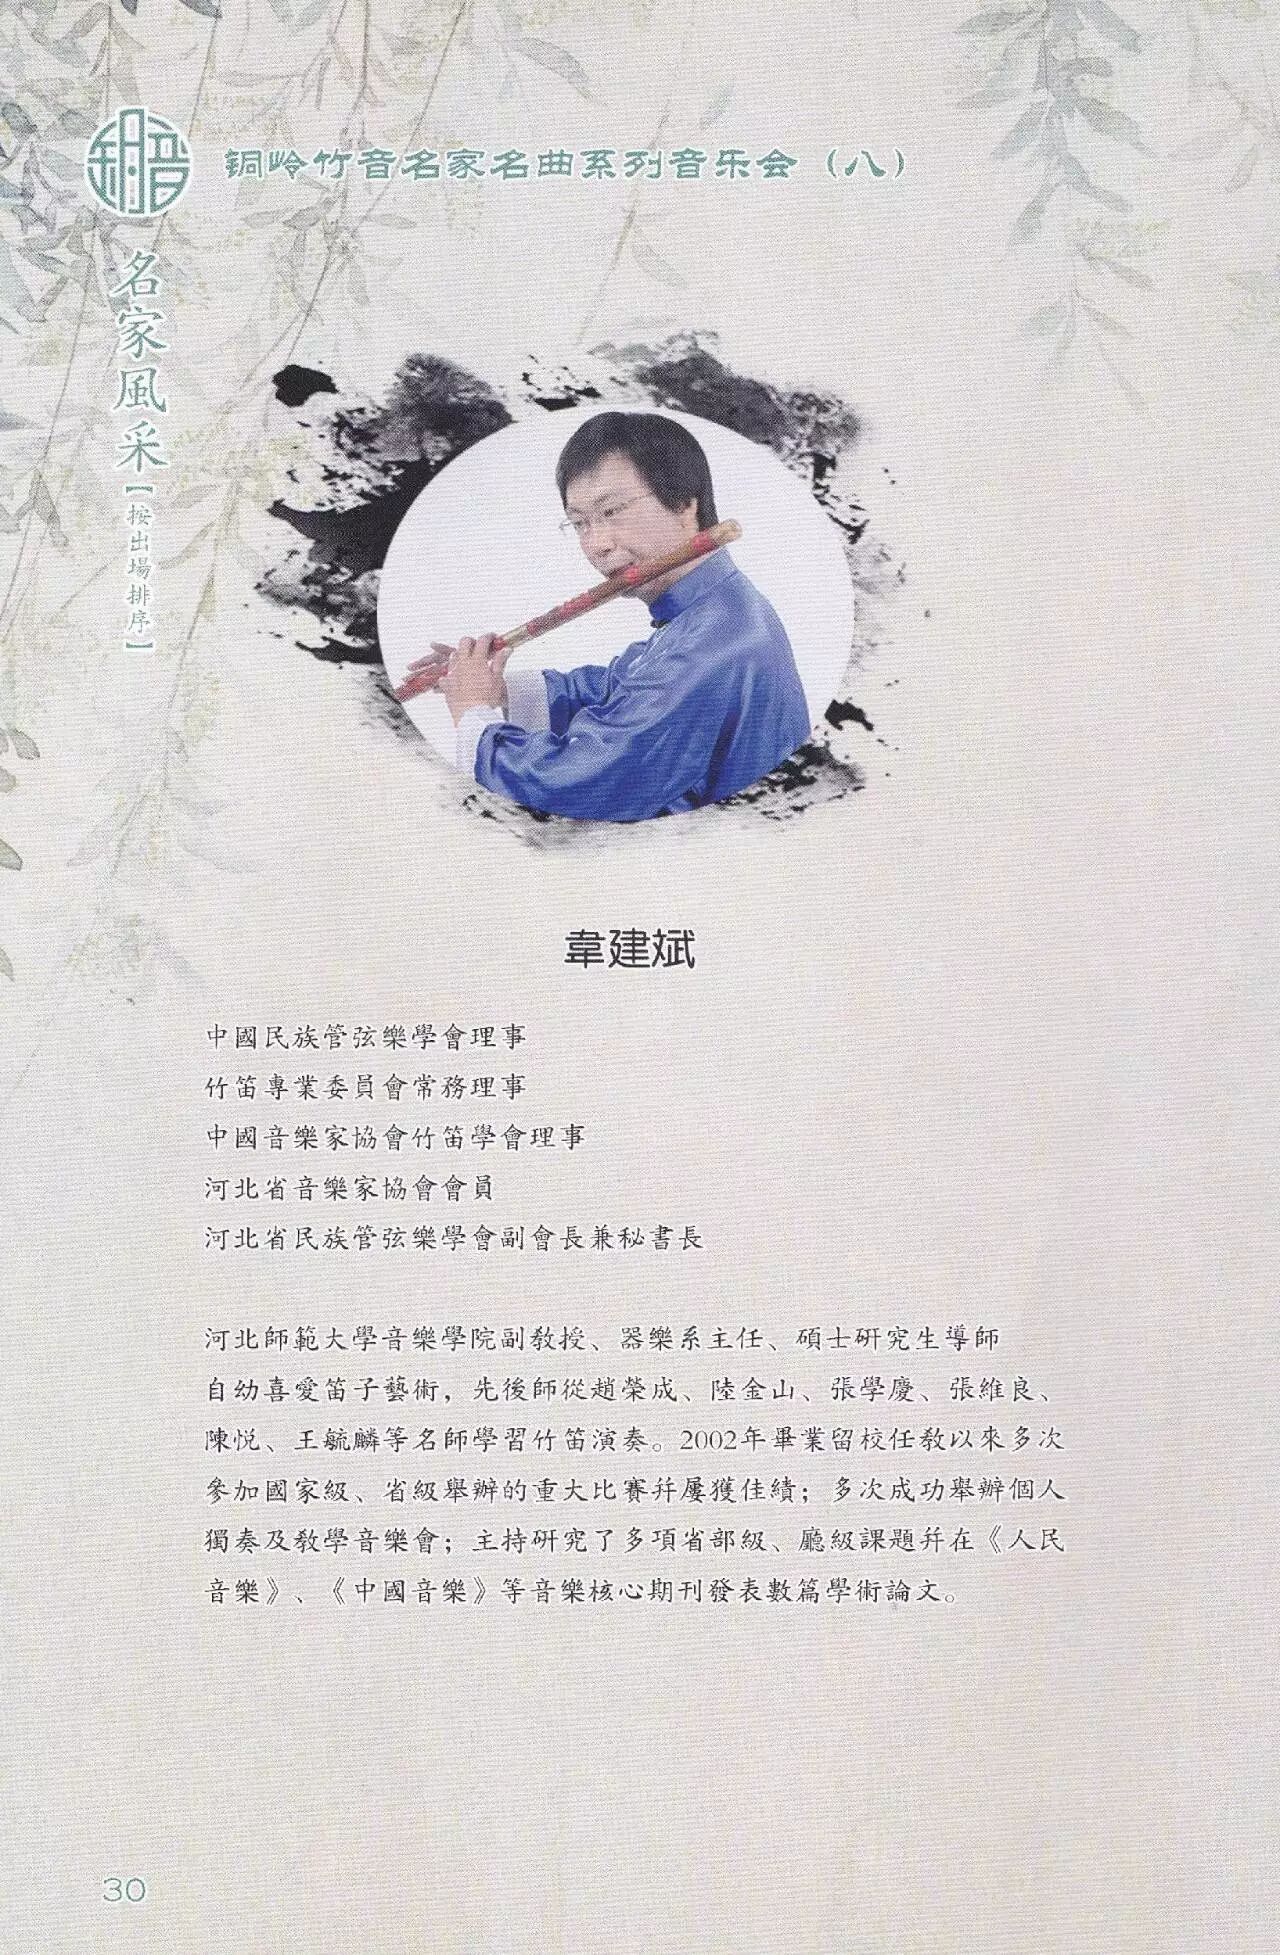 铜岭竹音名家名曲系列音乐会（八）
名家風采【按出場排序】
韋建斌
中國民族管弦樂學會理事
竹笛專業委員會常務理事
中國音樂家協會竹笛學會理事
河北省音樂家協會會員
河北省民族管弦樂學會副會長兼秘書長
河北師範大學音樂學院副教授、器樂系主任、碩士研究生導師
自幼喜愛笛子藝術，先後師從趙榮成、陸金山、張學慶、張維良、
陳悦、王毓麟等名師學習竹笛演奏。2002年畢業留校任教以來多次
參加國家級、省級舉辦的重大比賽并屢獲佳績；多次成功舉辦個人
獨奏及教學音樂會；主持研究了多項省部級、廳級課題并在《人民
音樂》、《中國音樂》等音樂核心期刊發表數篇學術論文。
30